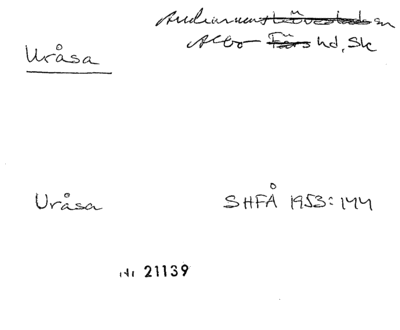 Andrarum Lövestads sn
Uråsa
Albo Färs hd, Sk
Uråsa SHFÅ 1953:144
Nr 21139